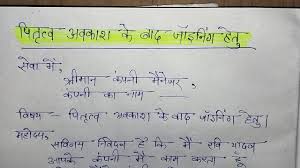 पितृत्व अवकाश के बाद जॉइनिंग हेतु
सेवा में,
श्रीमान कंपनी मैनेजर,
कंपनी का नाम ――
विषय - पितृत्व अवकाश के बाद जॉइनिंग हेतु।
महोदय,
सविनय निवेदन है कि मैं रवि यादव
आपके कंपनी में काम करता हूं